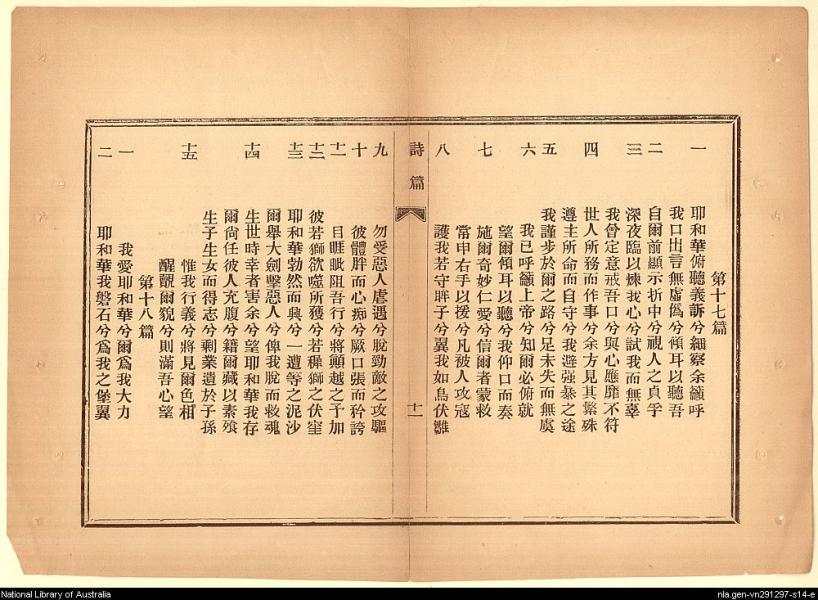 第十七篇
一 耶和華俯聽義訴兮細察余籲呼
我口出言無虛僞兮傾耳以聽吾
二 自爾前顯示折中兮視人之貞孚
三 深夜臨以煉我心兮試我而無辜
我曾定意戒吾口兮與心應靡不符
四 世人所務而作事兮余方見其繁殊
遵主所命而自守兮我避強暴之途
五 我謹步於爾之路兮足未失而無虞
六 我已呼籲上帝兮知爾必俯就
望爾傾耳以聽兮我仰口而奏
七 施爾奇妙仁愛兮信爾者蒙救
當申右手以援兮凡被人攻寇
八 護我若守眸子兮翼我如鳥伏雛
詩篇
十一
九 勿受惡人虐遇兮脫勁敵之攻驅
十 彼體胖而心痴兮厥口張而矜誇
十一 目睚眦阻吾行兮將顚越之予加
十二 彼若獅欲噬所獲兮若穉獅之伏窪
十三 耶和華勃然而興兮一遭等之泥沙
爾舉大劍擊惡人兮俾我脫而救魂
十四 生世時幸者害余兮望耶和華我存
爾尙任彼人充腹兮籍爾藏以素飧
生子生女而得志兮剩業遺於子孫
十五 惟我行義兮將見爾色相
醒觀爾貌兮則滿吾心望
第十八篇
一 我愛耶和華兮爾爲我大力
二 耶和華我磐石兮爲我之堡翼
National Library of Australia
nla.gen-vn291297-s14-e